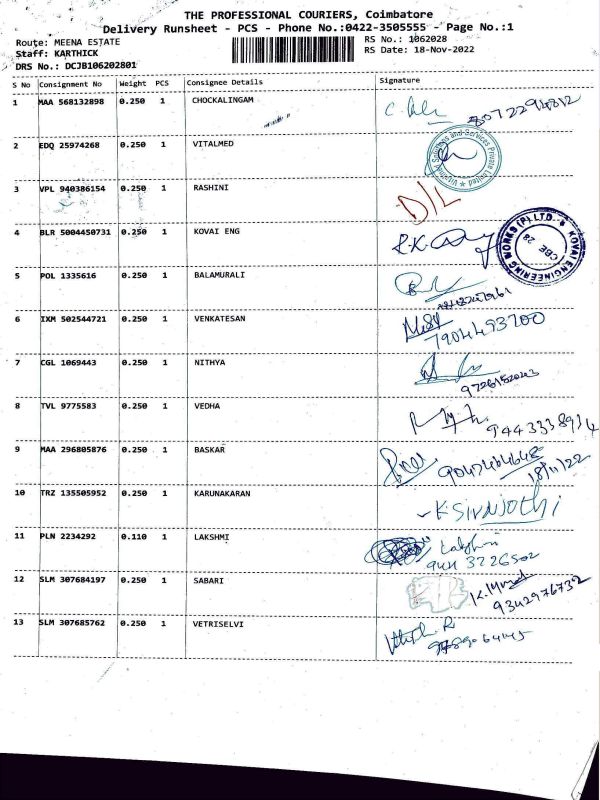 THE PROFESSIONAL COURIERS, Coimbatore
Delivery Runsheet - PCS - Phone No.:0422-3505555 - Page No.:1
Route: MEENA ESTATE
RS No.: 1062028
Staff: KARTHICK
RS Date: 18-Nov-2022
DRS No.: DCJB106202801
S No Consignment No Weight PCS Consignee Details Signature
1 MAA 568132898 0.250 1 CHOCKALINGAM
2 EDQ 25974268 0.250 1 VITALMED
3 VPL 940386154 0.250 1 RASHINI D/L
4 BLR 5004450731 0.250 1 KOVAI ENG
KOVAI ENGINEERING WORKS (P) LTD. CBE 28
5 POL 1335616 0.250 1 BALAMURALI
6 IXM 502544721 0.250 1 VENKATESAN
7904493700
7 CGL 1069443 0.250 1 NITHYA
8 TVL 9775583 0.250 1 VEDHA
9 MAA 296805876 0.250 1 BASKAR
18/11/22
10 TRZ 135505952 0.250 1 KARUNAKARAN K.Sivajothi
11 PLN 2234292 0.110 1 LAKSHMI Lakshmi
12 SLM 307684197 0.250 1 SABARI
9342976732
13 SLM 307685762 0.250 1 VETRISELVI